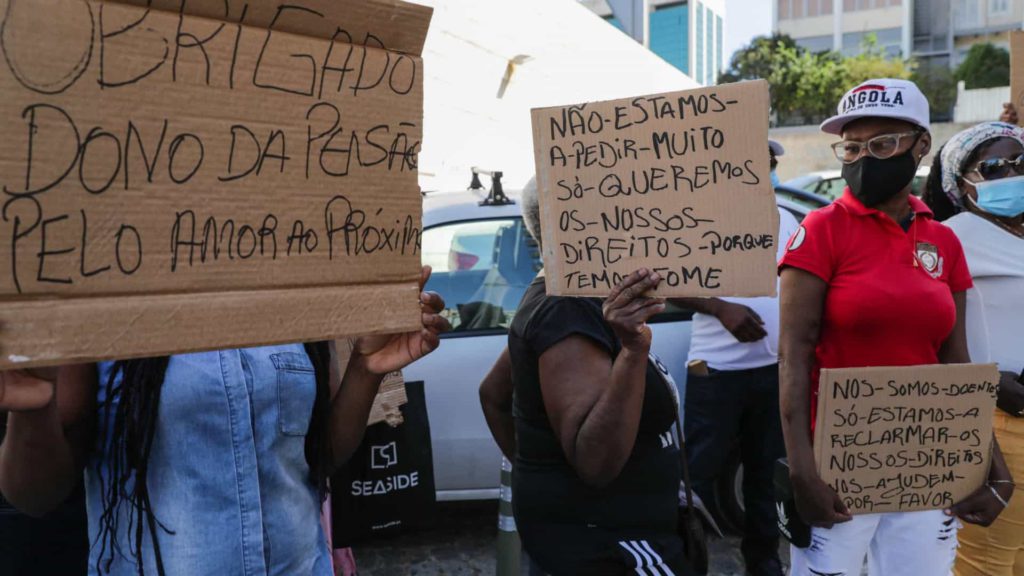 OBRIGADO
DONO DA PENSÃO
PELO AMOR AO PRÓXIMO
NÃO-ESTAMOS-
A-PEDIR-MUITO
SÓ-QUEREMOS
OS-NOSSOS-
DIREITOS-PORQUE
TEMOS FOME
ANGOLA
NOS-SOMOS-DOENTES
SÓ-ESTAMOS-A
RECLARMAR-OS
NOSSOS-DIREITOS
NOS-AJUDEM-
POR-FAVOR
SEASIDE